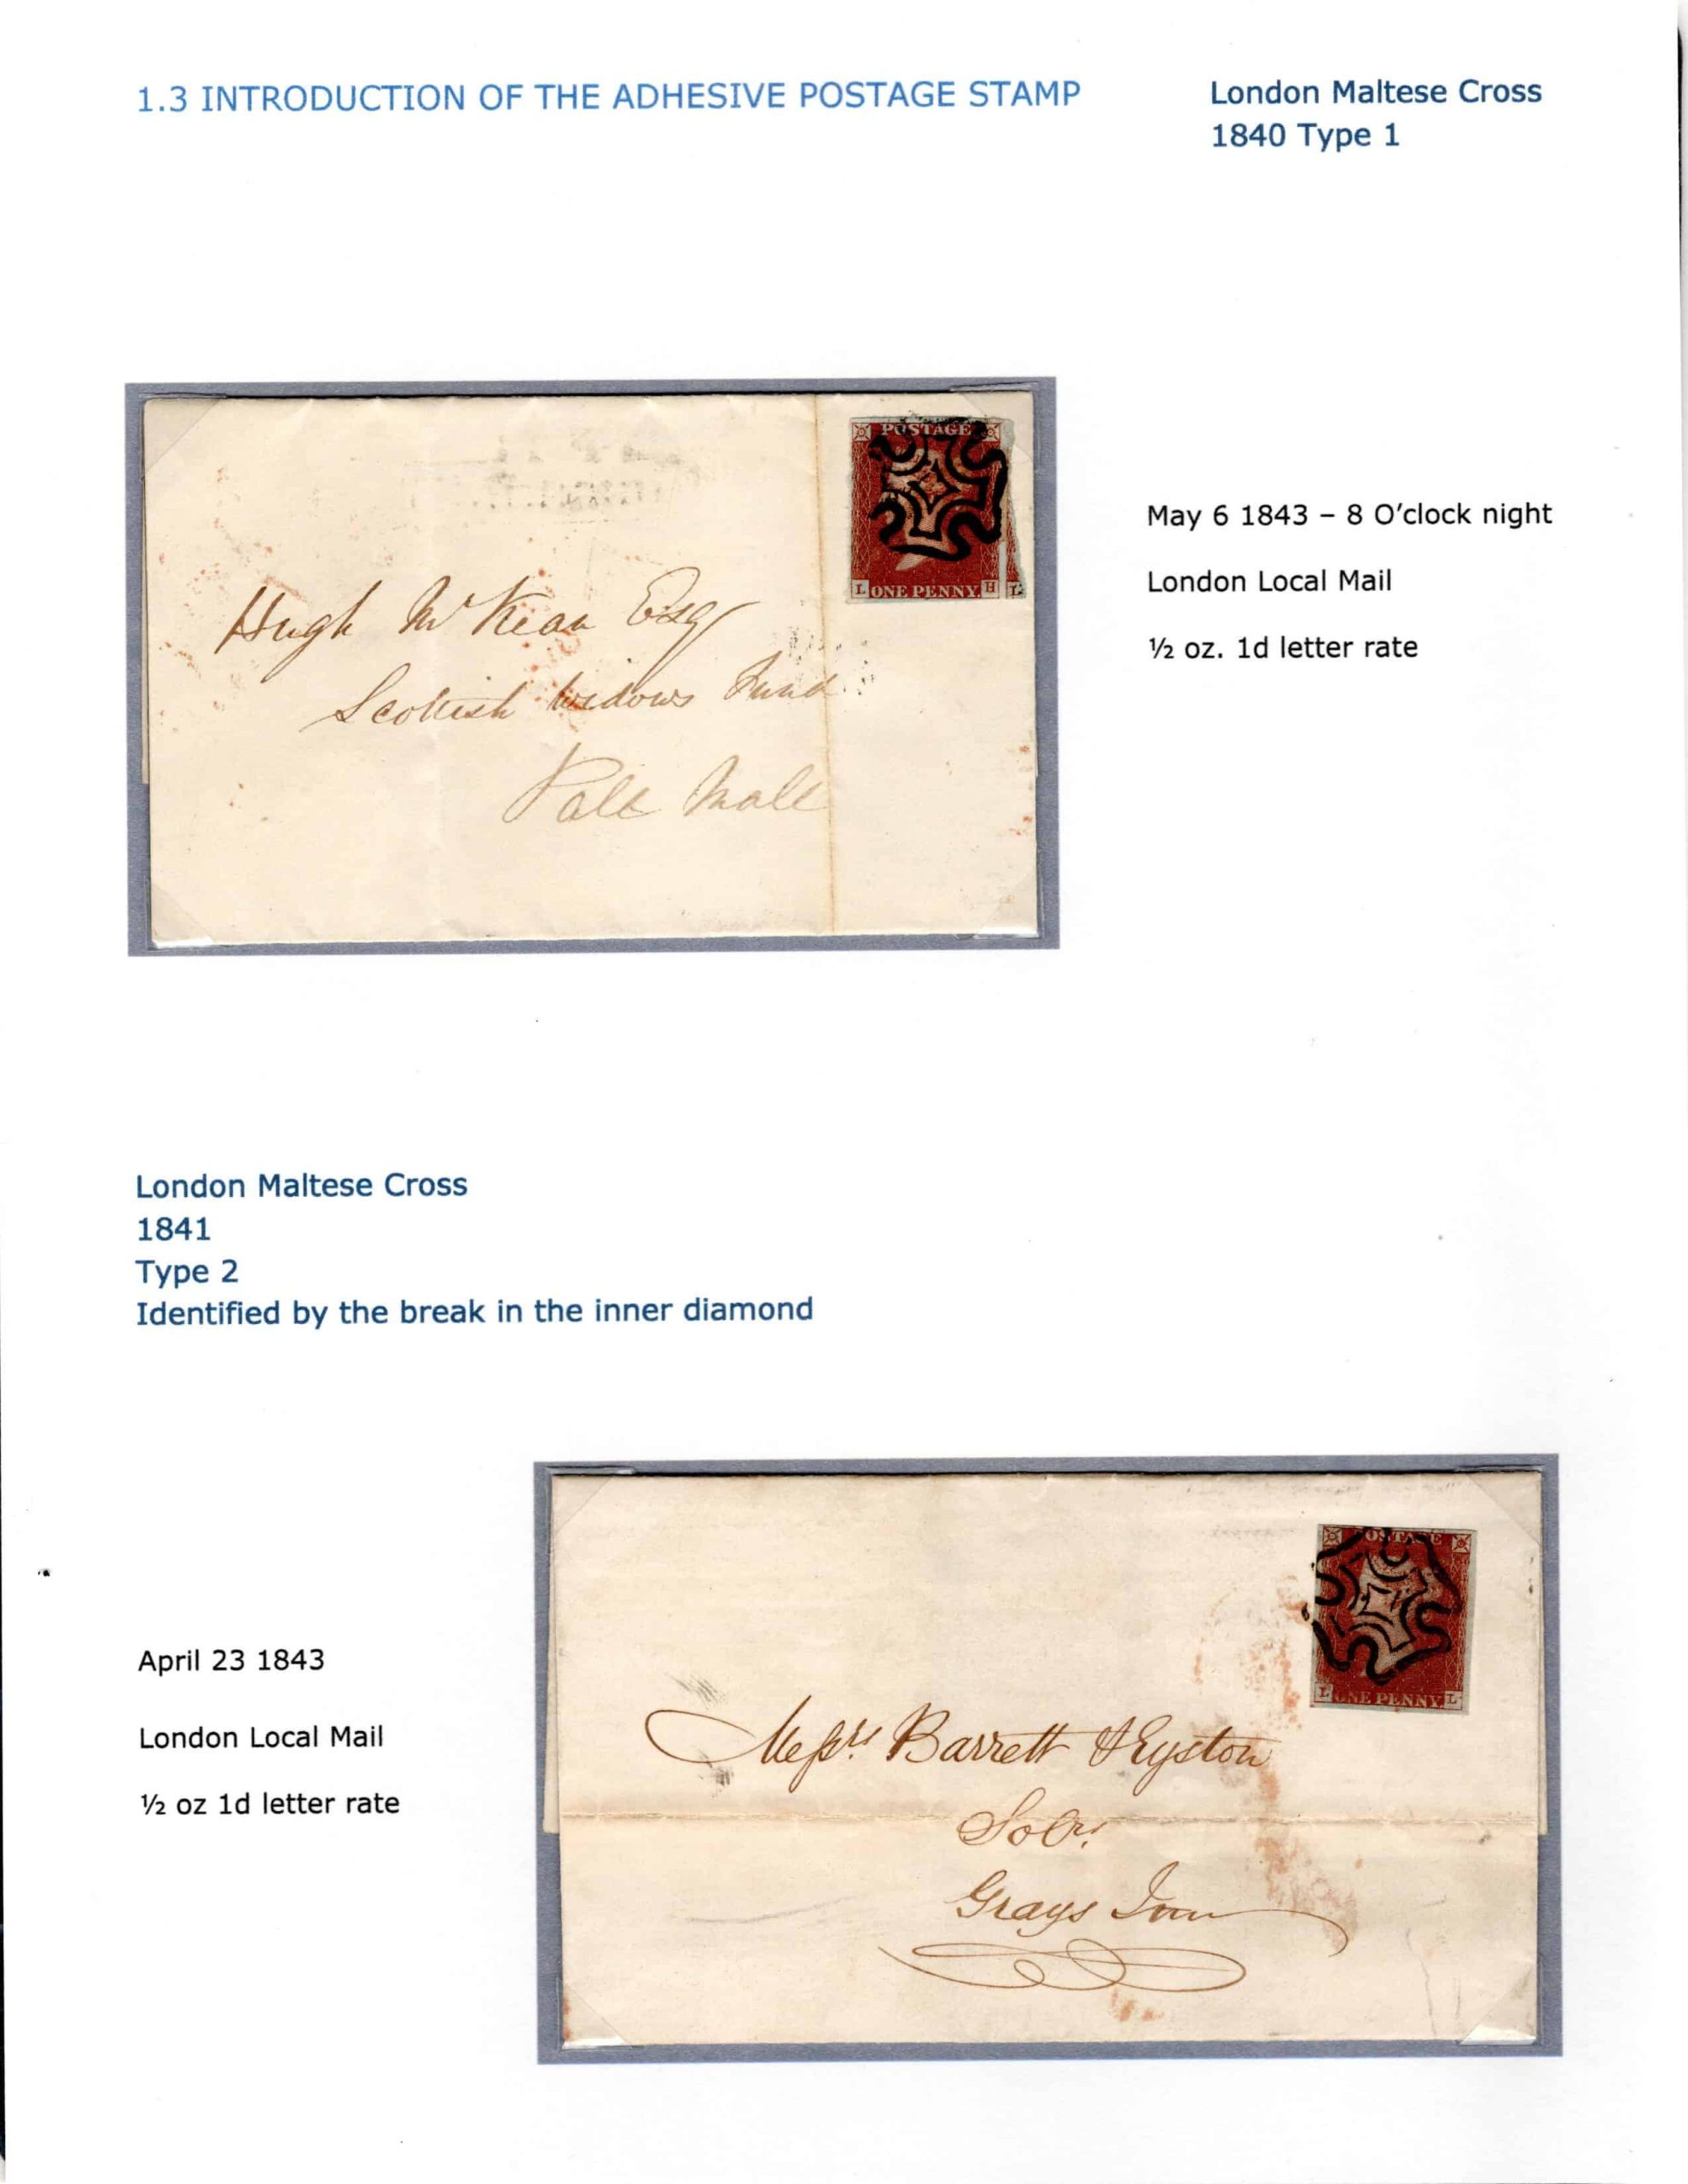 1.3 INTRODUCTION OF THE ADHESIVE POSTAGE STAMP
London Maltese Cross
1840 Type 1
POSTAGE
L ONE PENNY H L
May 6 1843 – 8 O'clock night
London Local Mail
½ oz. 1d letter rate
Hugh McKean Esq
Scottish Widows Fund
Pall Mall
London Maltese Cross
1841
Type 2
Identified by the break in the inner diamond
POSTAGE
L ONE PENNY L
April 23 1843
London Local Mail
½ oz 1d letter rate
Messrs Barrett & Eyston
Solrs
Grays Inn